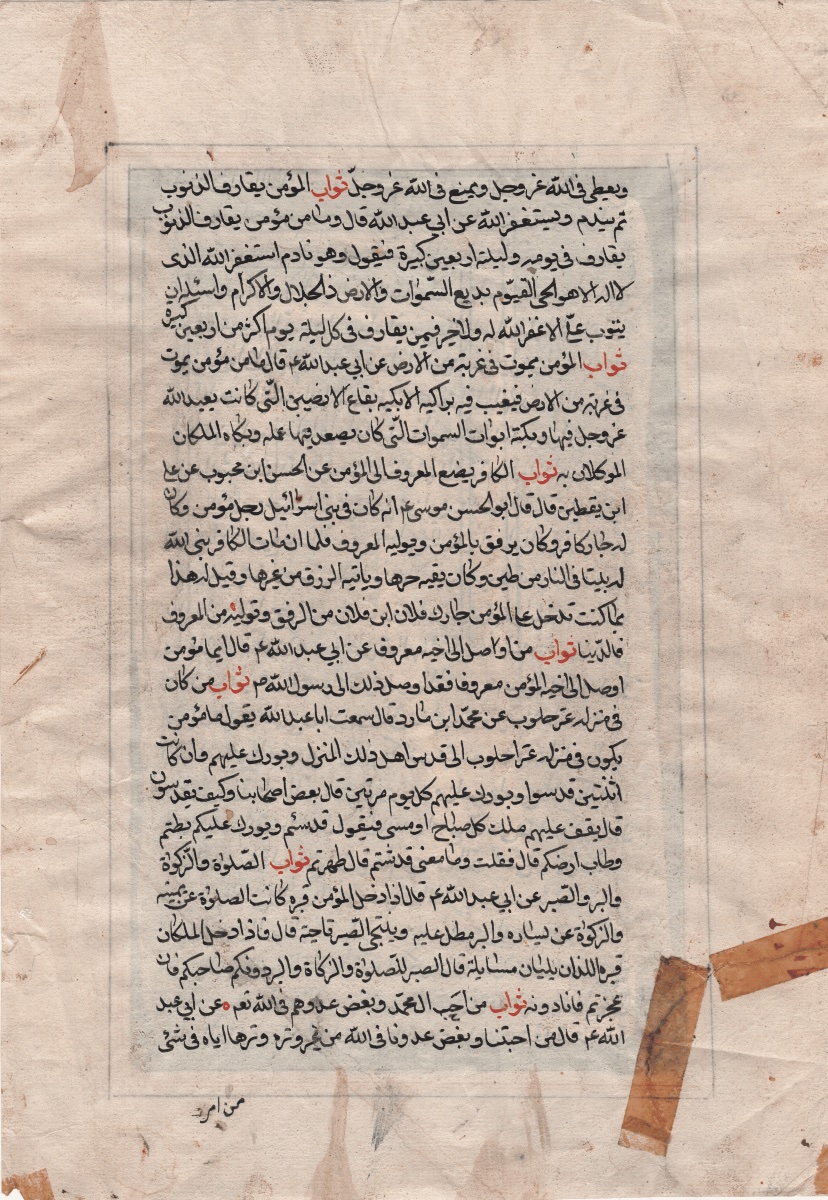 ويعطى فى الله عز وجل ويمنع فى الله عز وجل ثواب المؤمن يقارف الذنوب
ثم يندم ويستغفر الله عن ابي عبد الله قال وما من مؤمن يقارف الذنوب
يقارف فى يومه وليلته اربعين كبيرة فيقول وهو نادم استغفر الله الذى
لا اله الا هو الحى القيوم بديع السموات والارض ذالجلال والاكرام واسئله ان
يتوب على الا غفر الله له ولا خير فيمن يقارف فى كل ليلة يوم اكثر من اربعين كبيرة
ثواب المؤمن يموت فى غربته من الارض عن ابي عبد الله ع قال ما من مؤمن يموت
فى غربته من الارض فيغيب فيه بواكيه الا بكيه بقاع الارضين التى كانت يعبد الله
عز وجل فيها وبكته ابواب السموات التى كان يصعد فيها عمله وبكاه الملكان
الموكلان به ثواب الكافر يضع المعروف الى المؤمن عن الحسن ابن محبوب عن على
ابن يقطين قال قال ابو الحسن موسى ع انه كان فى بنى اسرائيل رجل مؤمن وكان
له جار كافر وكان يرفق بالمؤمن ويوليه المعروف فلما ان مات الكافر بنى الله
له بيتا فى النار من طين وكان يقيه حرها وياتيه الرزق من غيرها وقيل له هذا
بما كنت تدخل على المؤمن جارك فلان ابن فلان من الرفق وتوليته من المعروف
فالدنيا ثواب من اوصل الى اخيه معروفا عن ابي عبد الله ع قال ايما مؤمن
اوصل الى اخيه المؤمن معروفا فقد اوصل ذلك الى رسول الله ص ثواب من كان
فى منزله عنز حلوب عن محمد ابن مارد قال سمعت ابا عبد الله يقول ما مؤمن
يكون فى منزله عنز احلوب الى قدس اهل ذلك المنزل وبورك عليهم وان كانت
اثنتين قدسوا وبورك عليهم كل يوم مرتين قال بعض اصحابنا وكيف يقدسون
قال يقف عليهم ملك كل صباح او مسى فيقول قدستم وبورك عليكم بطتم
وطاب ارضكم قال فقلت وما معنى قدستم قال طهرتم ثواب الصلوة والزكوة
والبر والصبر عن ابي عبد الله ع قال اذا دخل المؤمن قبره كانت الصلوة عن يمينه
والزكوة عن يساره والبر مطل عليه ويتنحى الصبر ناحية قال فاذا دخل الملكان
قبره اللذان يليان مسايلة قال الصبر للصلوة والزكاة والبر دونكم صاحبكم فان
عجزتم فانا دونه ثواب من احب ال محمد وبغض عدوهم فى الله تعه عن ابي عبد
الله ع قال من احبنا وبغض عدونا فى الله من غير وتره وترها اياه فى شئ
من امر